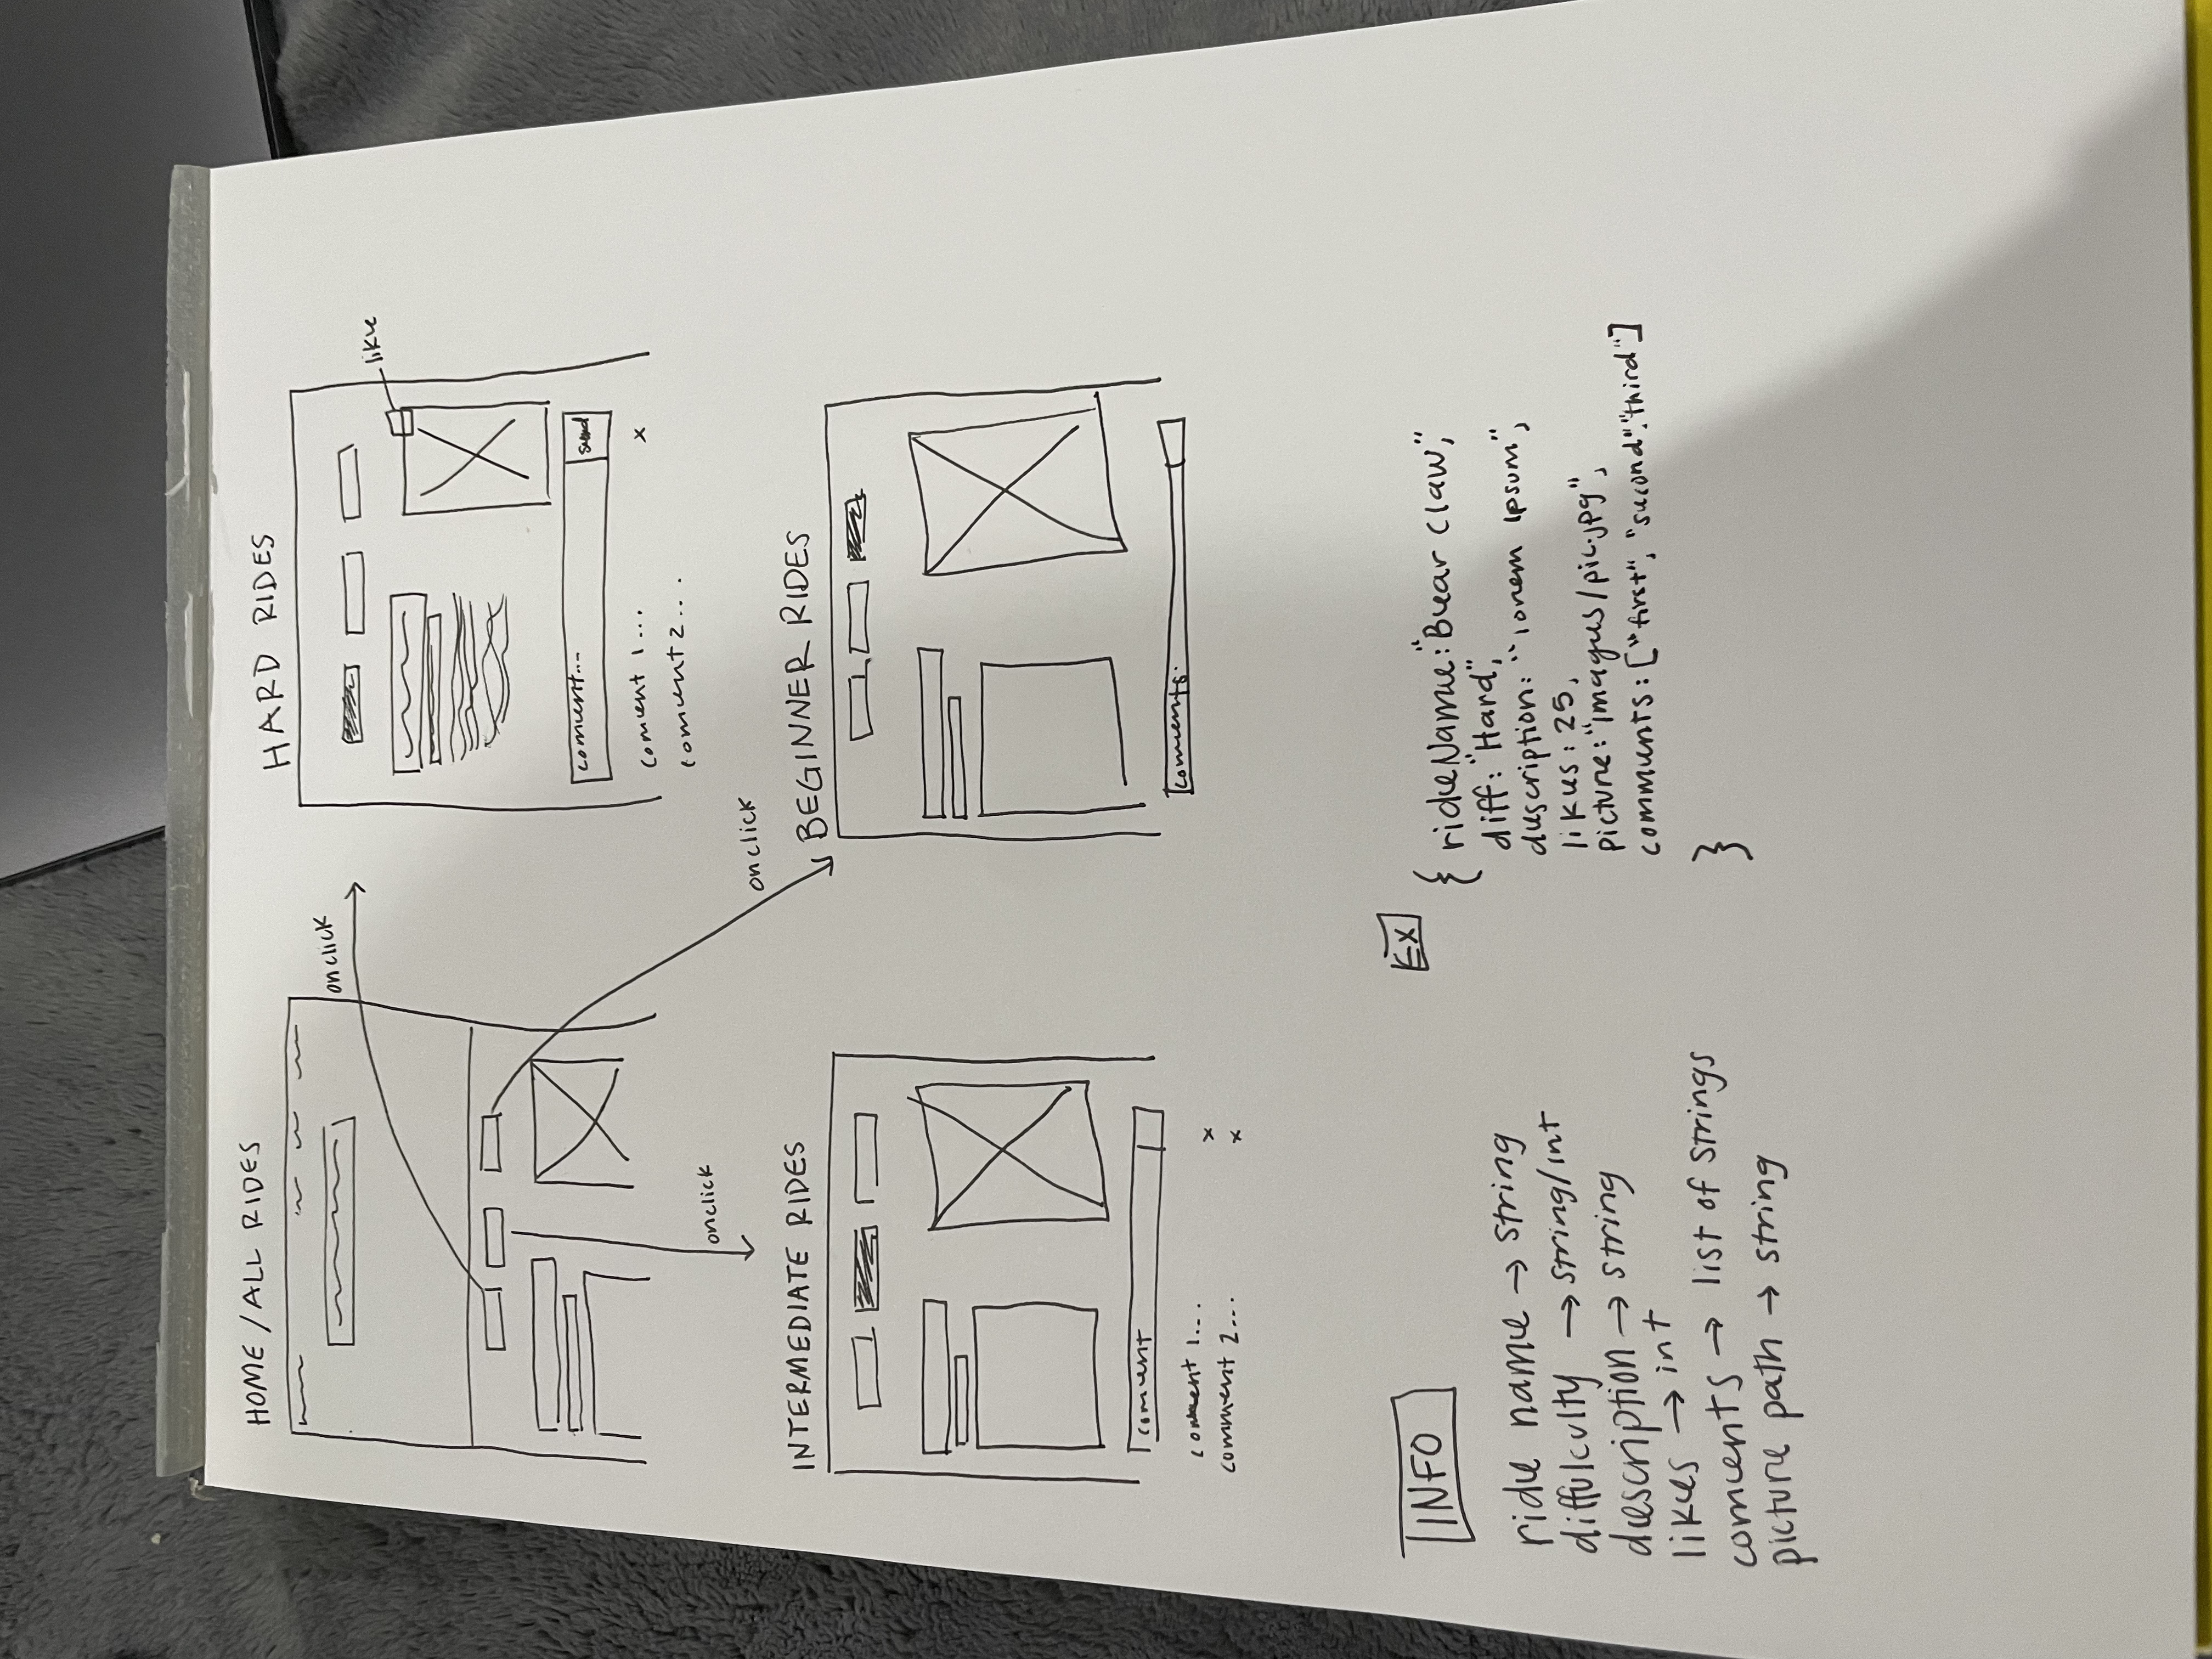 HOME / ALL RIDES
onclick
HARD RIDES
like
coment...
send
coment 1...
x
coment 2...
onclick
onclick
INTERMEDIATE RIDES
coment
comment 1...
x
comment 2...
x
BEGINNER RIDES
coments.
INFO
ride name → string
diffulculty → string/int
description → string
likes → int
coments → list of strings
picture path → string
EX
{ rideName: "Bear claw",
diff: "Hard",
description: "lorem ipsum",
likes: 25,
picture: "images/pic.jpg",
comments: ["first", "second", "third"]
}